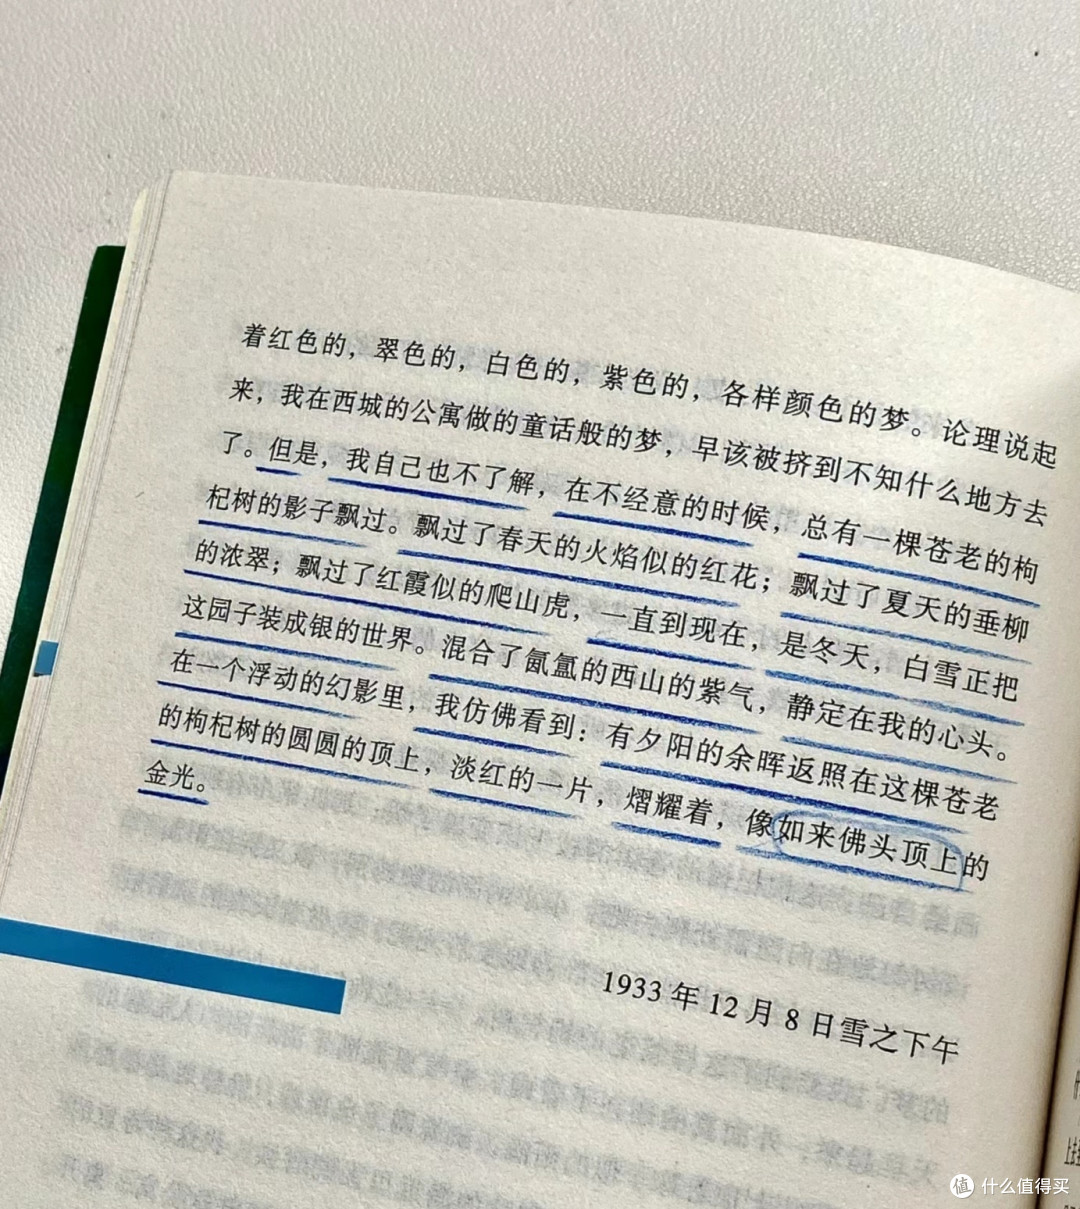 着红色的，翠色的，白色的，紫色的，各样颜色的梦。论理说起
来，我在西城的公寓做的童话般的梦，早该被挤到不知什么地方去
了。但是，我自己也不了解，在不经意的时候，总有一棵苍老的枸
杞树的影子飘过。飘过了春天的火焰似的红花；飘过了夏天的垂柳
的浓翠；飘过了红霞似的爬山虎，一直到现在，是冬天，白雪正把
这园子装成银的世界。混合了氤氲的西山的紫气，静定在我的心头。
在一个浮动的幻影里，我仿佛看到：有夕阳的余晖返照在这棵苍老
的枸杞树的圆圆的顶上，淡红的一片，熠耀着，像如来佛头顶上的
金光。
1933 年 12 月 8 日雪之下午
值 什么值得买